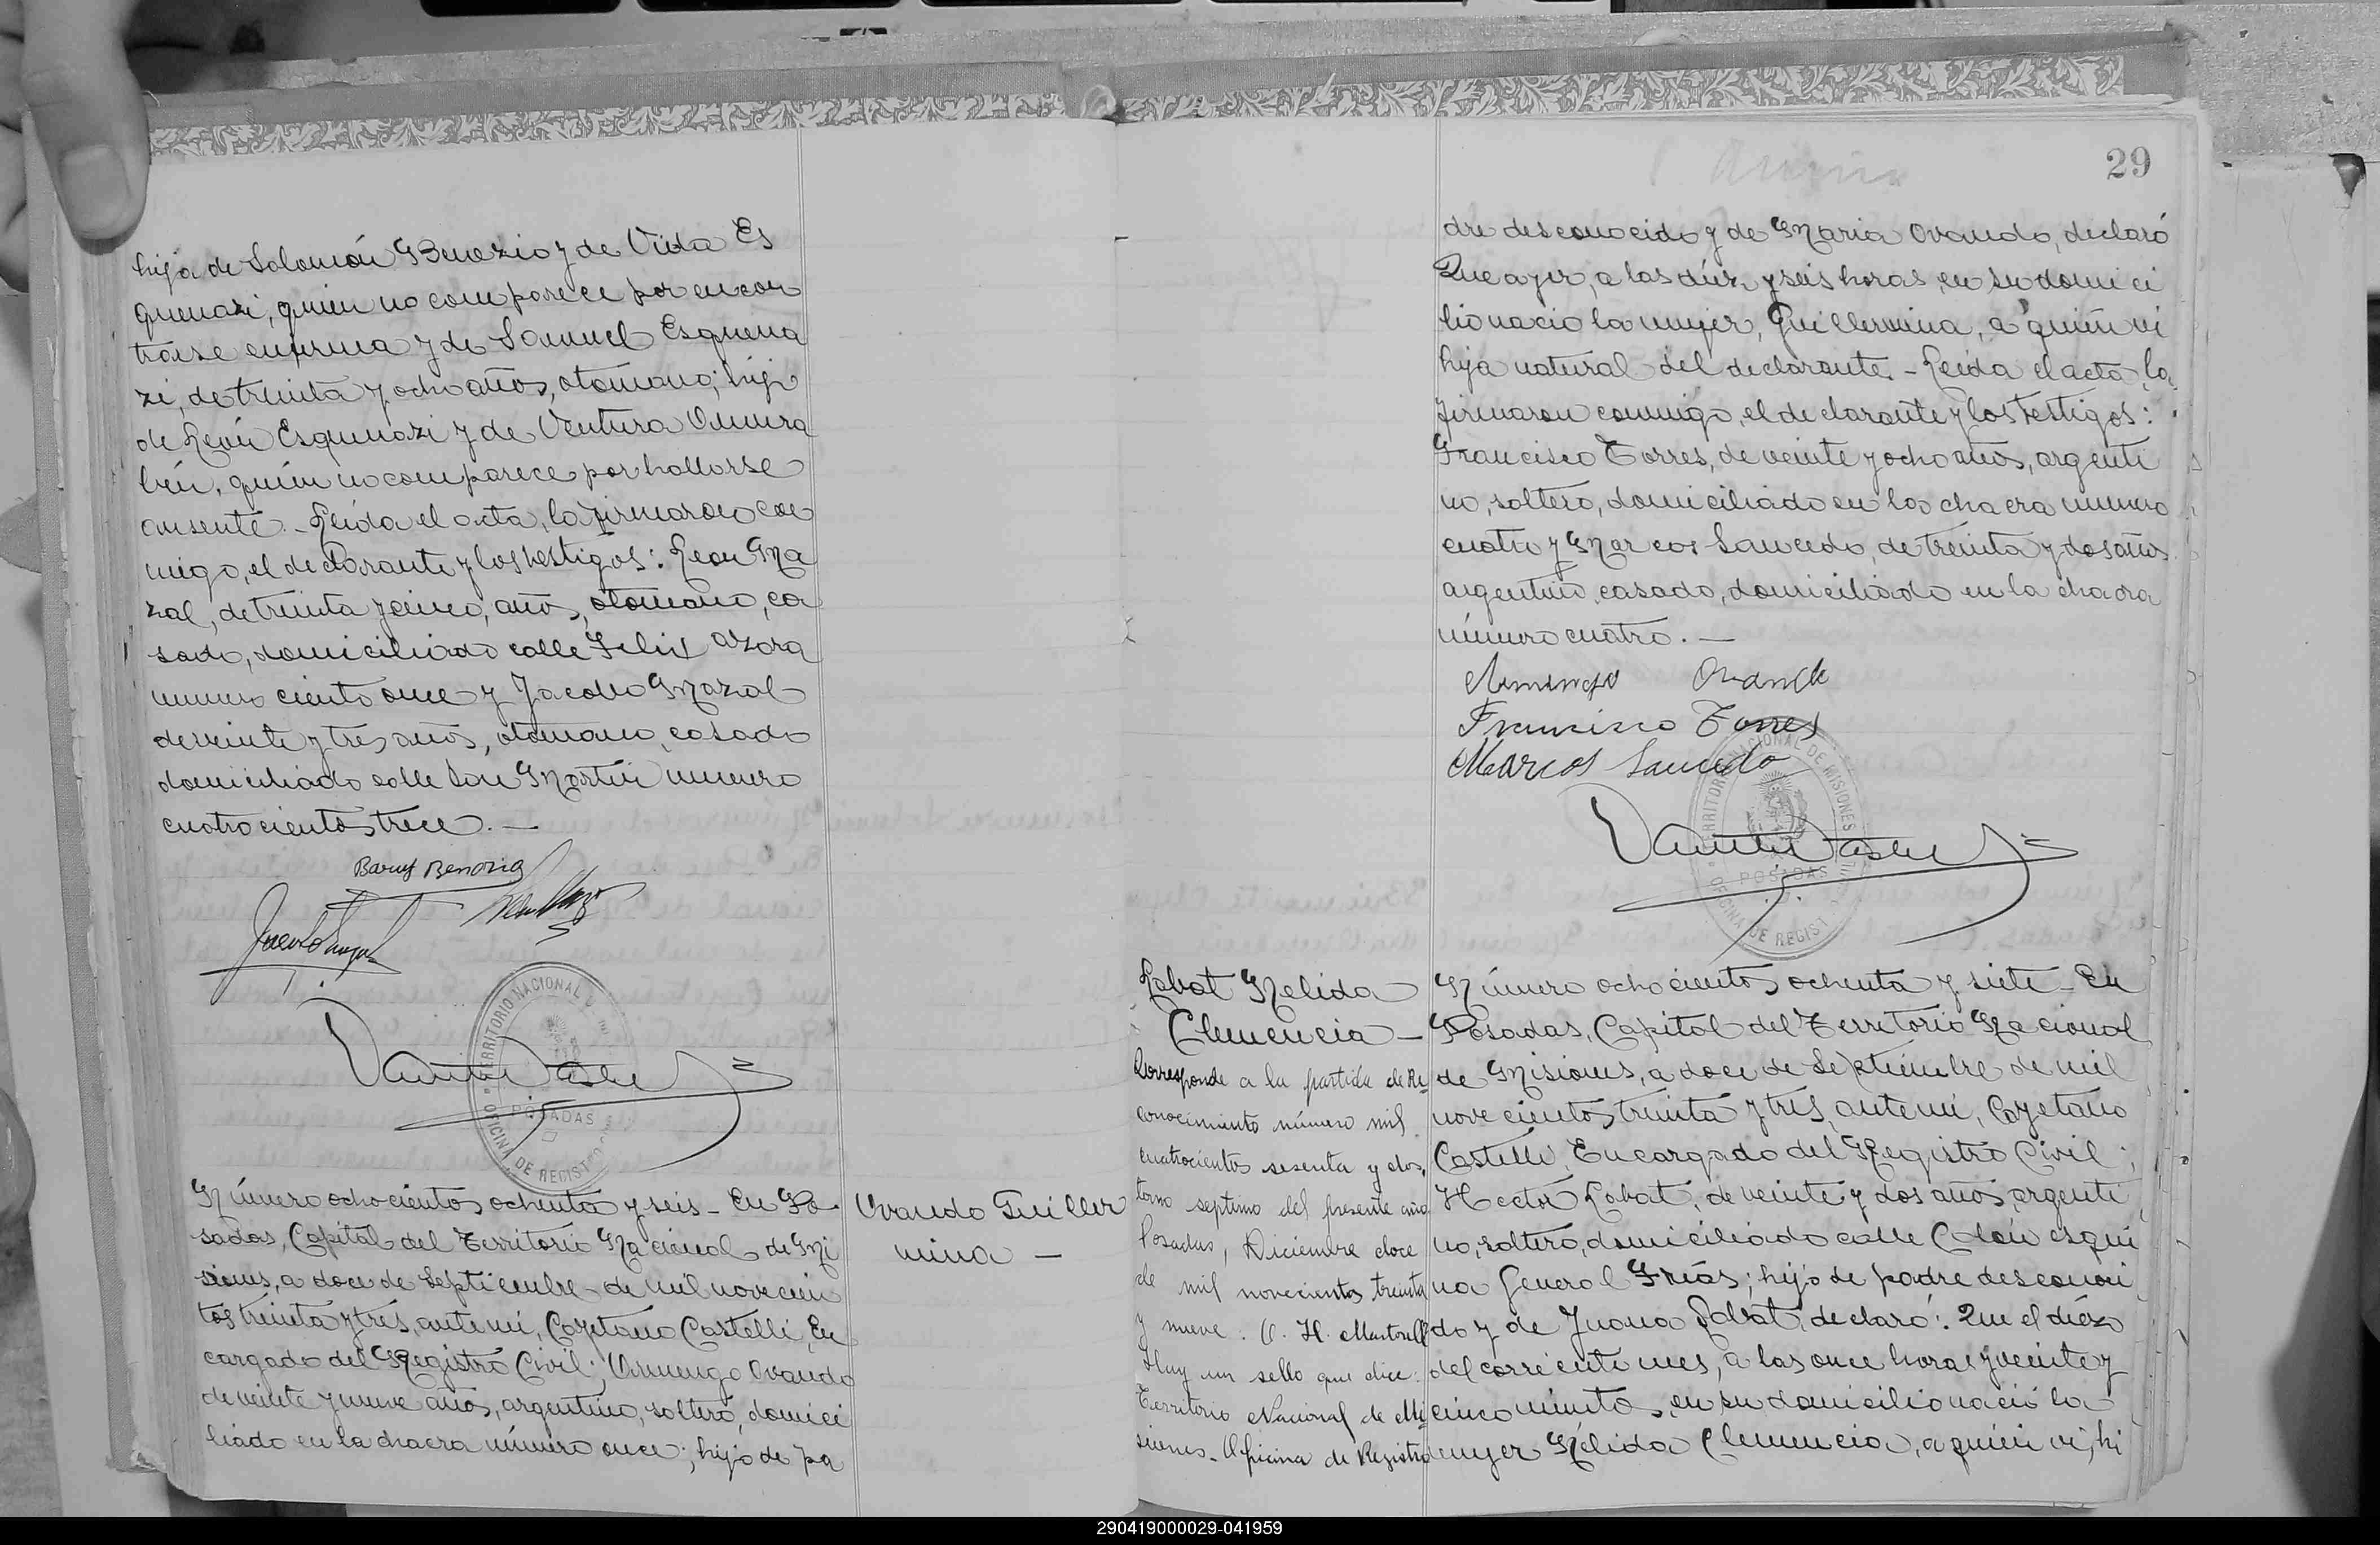 hija de Solomón Benozio y de Vida Es
quenazi, quien no comparece por encon
trarse enferma y de Samuel Esquena
zi, de treinta y ocho años, otomano; hijo
de León Esquenazi y de Ventura
quién no comparece por hallarse
ausente.- Leída el acta, la firmaron con
migo, el declarante y los testigos: Leon Ma
zal, de treinta y cinco, años, otomano, ca
sado, domiciliado calle Felix Azara
numero ciento once y Jacobo Mazal
de veinte y tres años, otomano, casado
domiciliado calle San Martín numero
cuatrocientos trece.—
TERRITORIO NACIONAL DE
POSADAS
OFICINA DE REGISTRO
Número ochocientos ochenta y seis_ En Po
sadas, Capital del Territorio Nacional de Mi
siones, a doce de Septiembre de mil novecien
tos treinta y tres, ante mí, Cayetano Castelli, En
cargado del Registro Civil; Armengo Ovando
de veinte y nueve años, argentino, soltero, domici
liado en la chacra número once; hijo de pa
Ovando Guiller
mina —
29
dre desconocido y de Maria Ovando, declaró
Que ayer, a las diez y seis horas, en su domici
lio nació la mujer, Guillermina, a quién vi
hija natural del declarante.- Leída el acta, la
firmaron conmigo, el declarante y los testigos:
Francisco Torres, de veinte y ocho años, argenti
no, soltero, domiciliado en la chacra numero
cuatro y Marcos Saucedo, de treinta y dos años
argentino, casado, domiciliado en la chacra
número cuatro.—
Armengo Ovando
Francisco Torres
Marcos Saucedo
TERRITORIO NACIONAL DE MISIONES
POSADAS
OFICINA DE REGIST
Labat Nelida
Clemencia —
Corresponde a la partida de Re
conocimiento número mil
cuatrocientos sesenta y dos,
tomo septimo del presente año
Posadas, Diciembre doce
de mil novecientos treinta
y nueve. O. H. Martorell
Hay un sello que dice:
Territorio Nacional de Mi
siones_ Oficina de Registro
Número ochocientos ochenta y siete_ En
Posadas, Capital del Territorio Nacional
de Misiones, a doce de Septiembre de mil
novecientos treinta y tres, ante mí, Cayetano
Castelli, Encargado del Registro Civil;
Hector Labat, de veinte y dos años, argenti
no, soltero, domiciliado calle Colón esqui
na General Frías; hijo de padre desconoci
do y de Juana Labat, declaró: Que el diez
del corriente mes, a las once horas y veinte y
cinco minutos, en su domicilio nació la
mujer Nélida Clemencia, a quién vi, hi
290419000029-041959